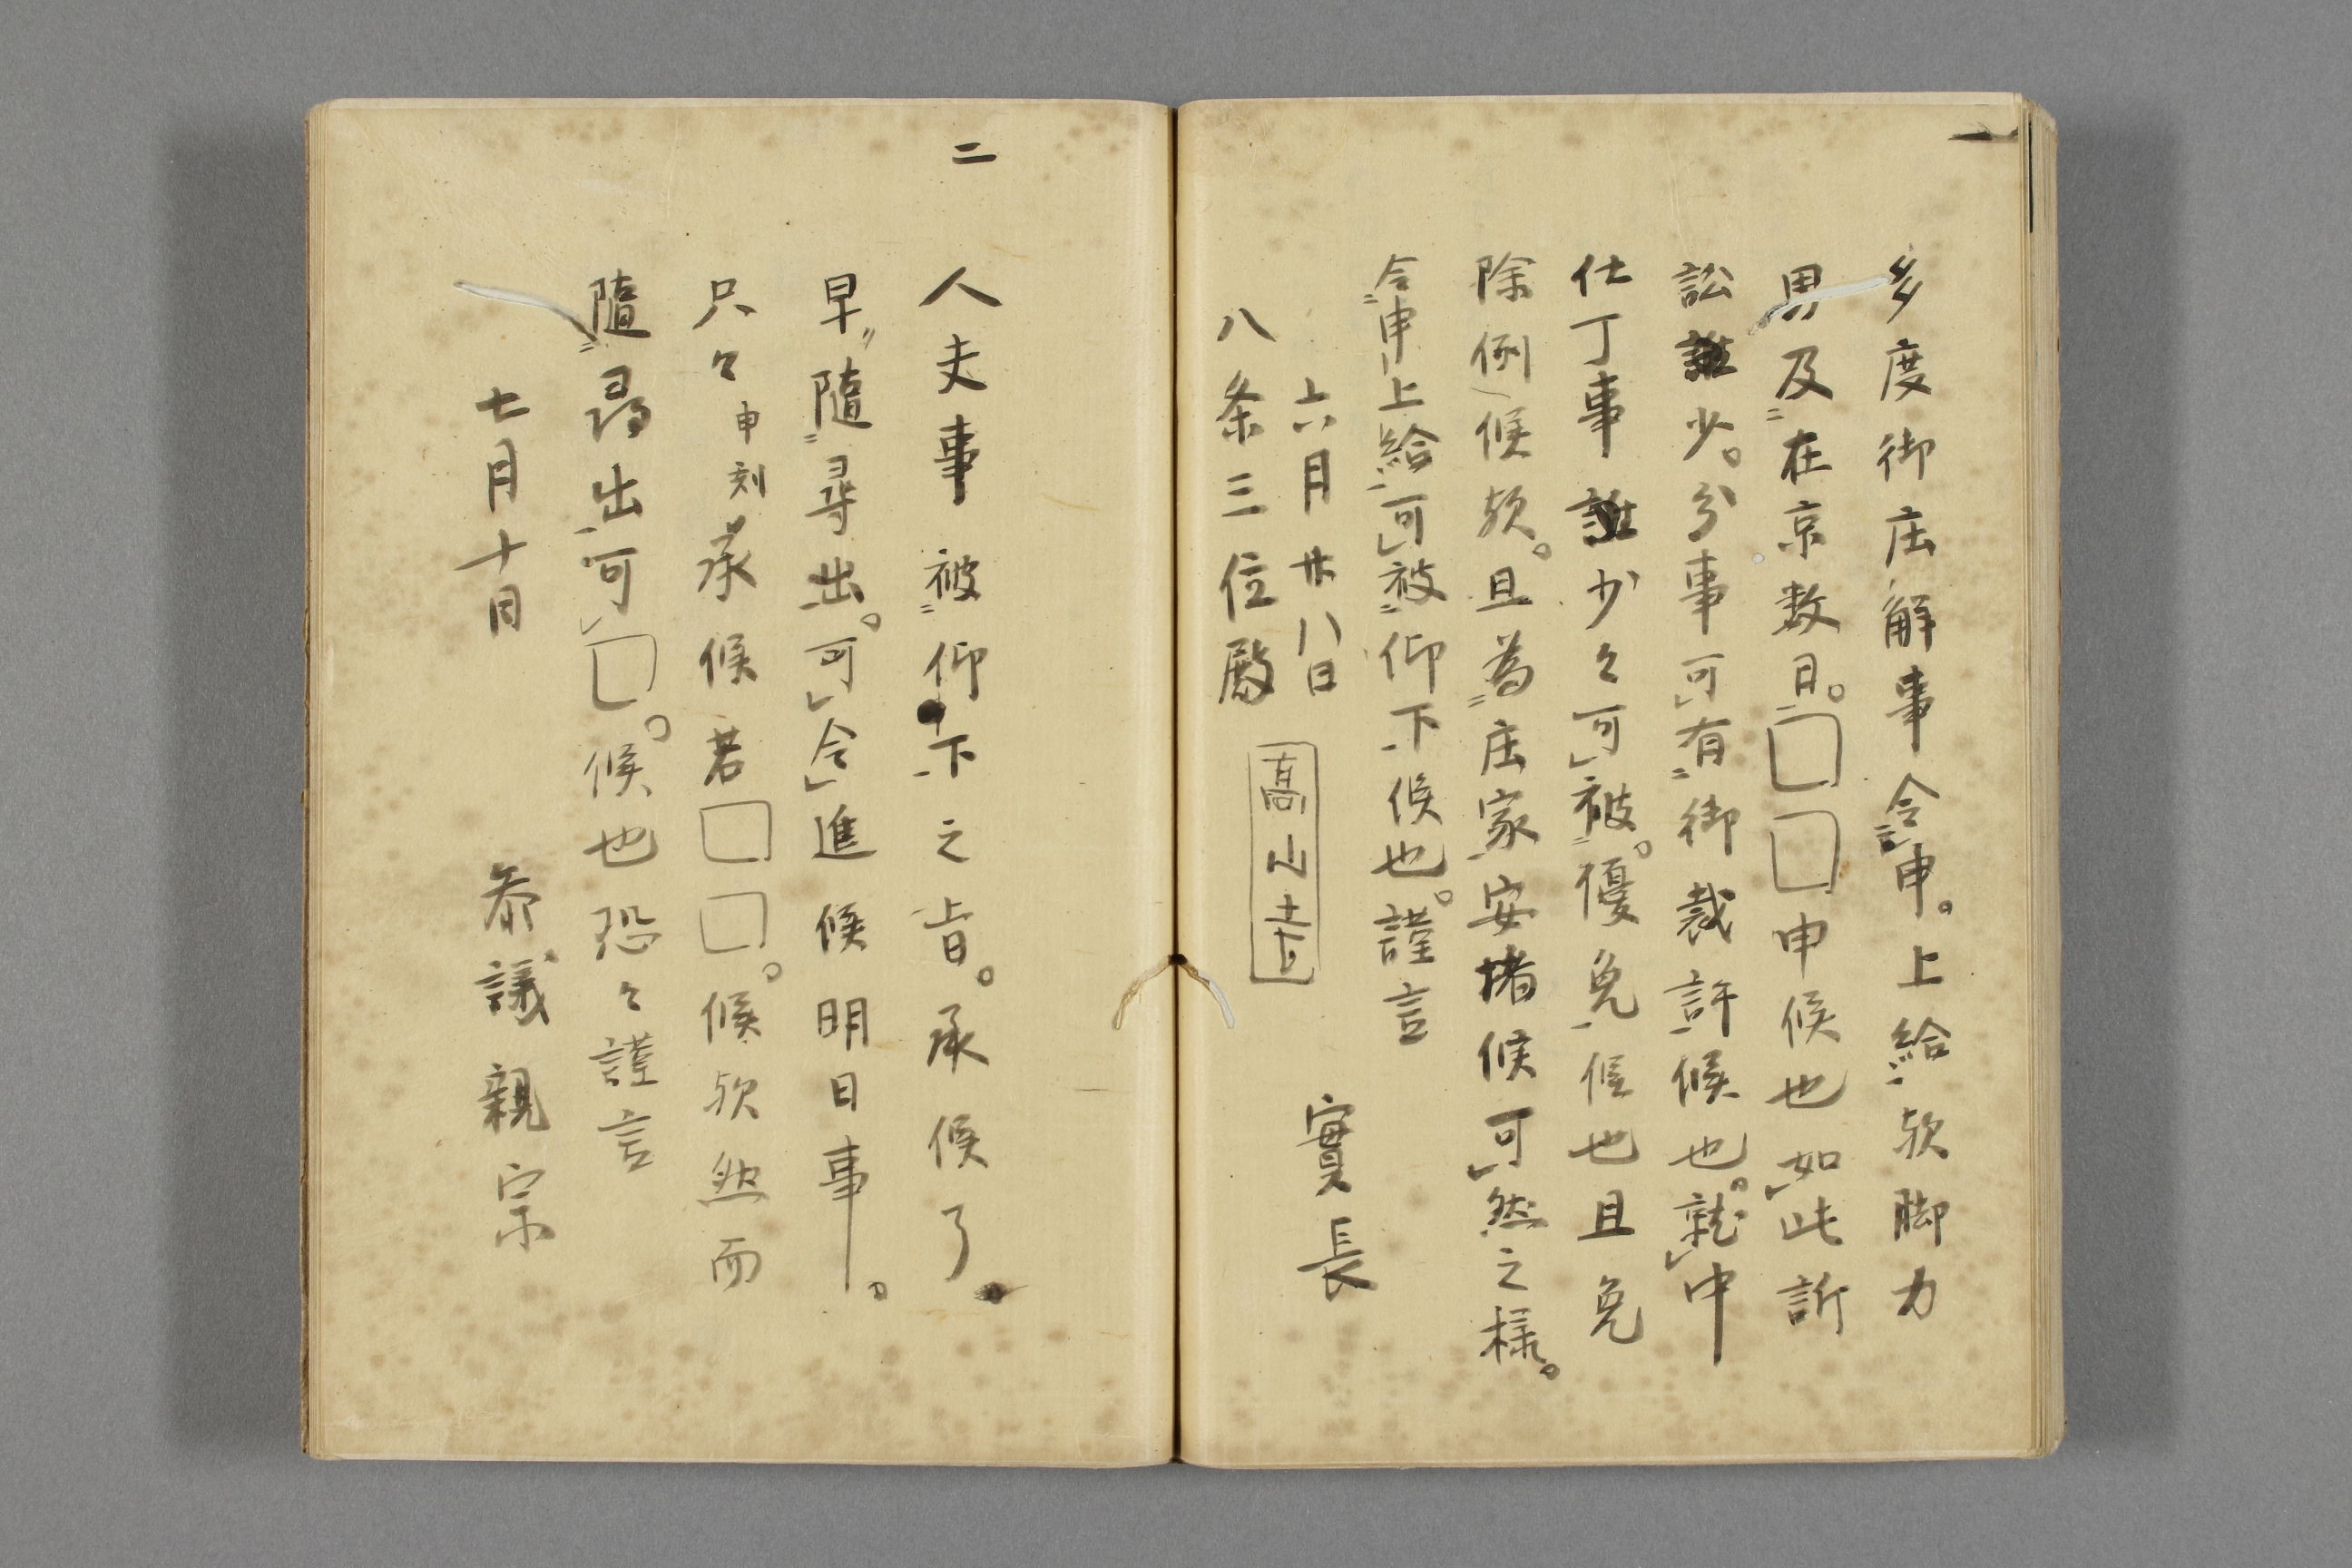 一
多度御庄解事令申。上給欤脚力
思及在京数日。□□申候也如此訴
訟誰少。分事可有御裁許候也。就中
仕丁事誰少々可被。優免候也且免
除例候欤。且為庄家安堵候可然之様。
令申上給可被仰下候也。謹言
六月廿八日 實長
八条三位殿
高山寺
二
人夫事被仰下之旨。承候了。
早隨尋出。可令進候明日事。
只々申刻承候若□□。候欤然而
隨尋出可□。候也恐々謹言
七月十日 参議親宗